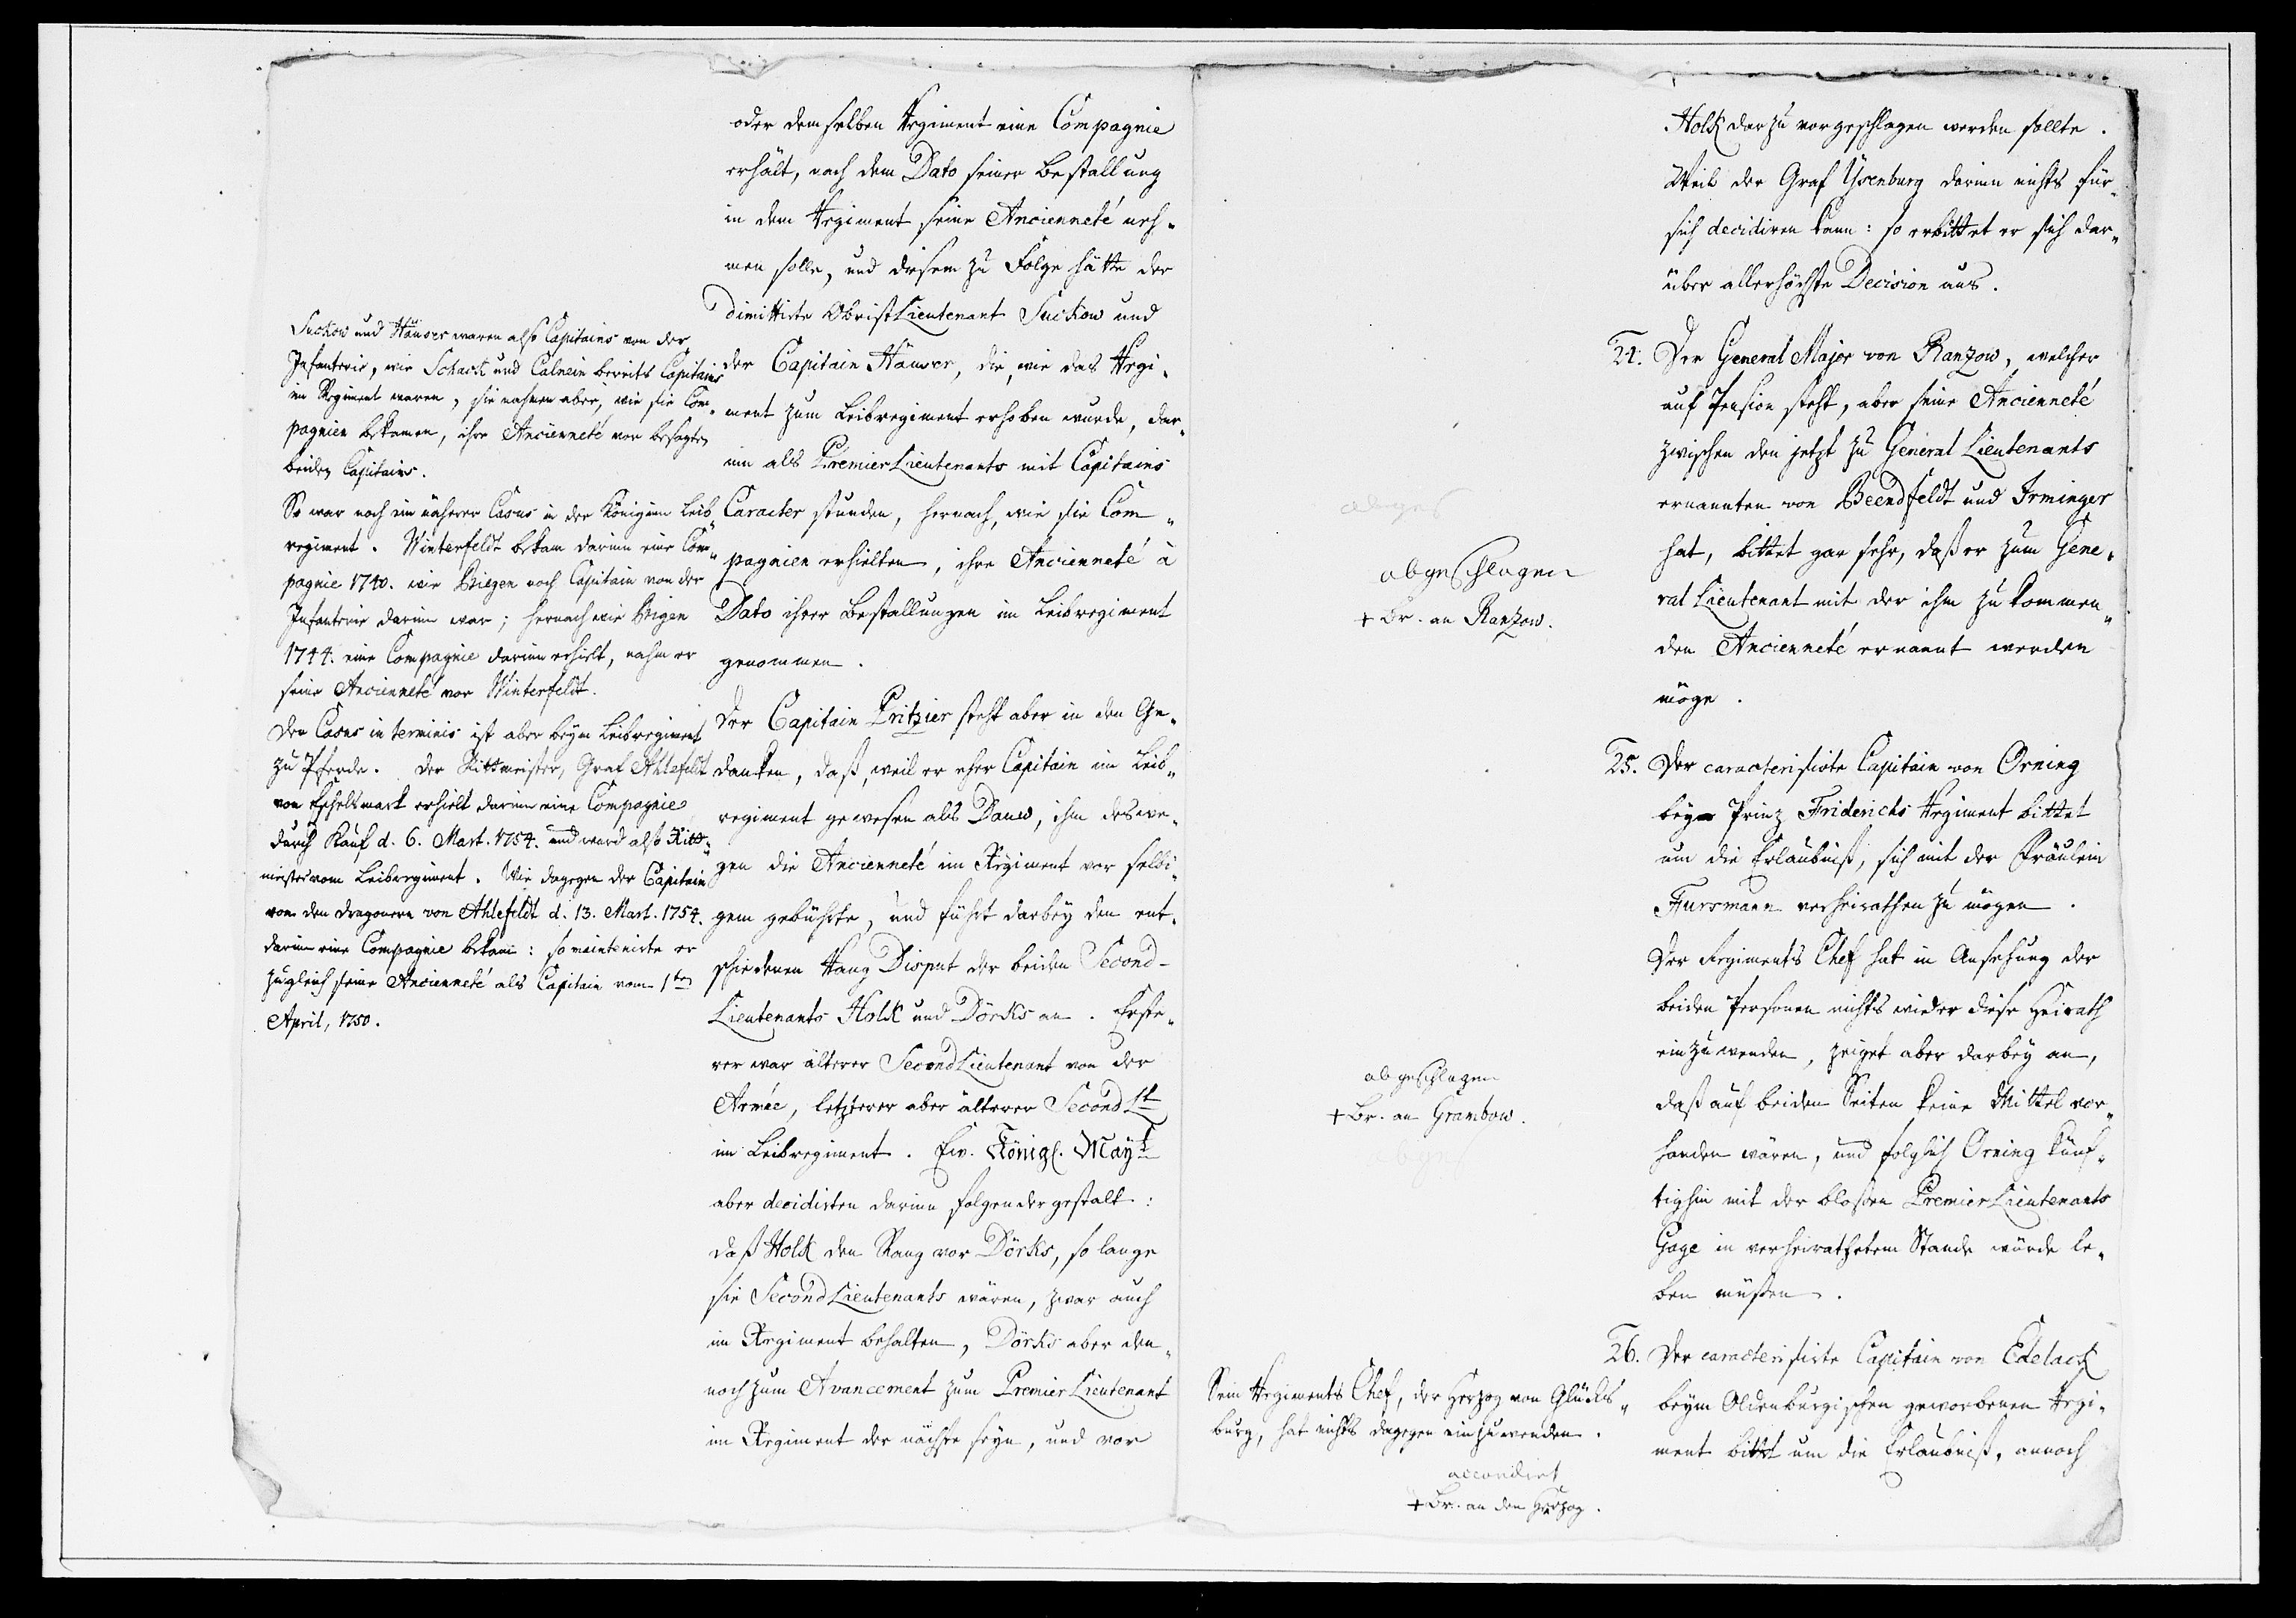 oder demselben Regiment eine Compagnie
erhält, nach dem Dato seiner Bestallung
in dem Regiment seine Ancienneté neh-
men solle, und diesem zu Folge hätte der
dimittirte ObristLieutenant Suckow und
der Capitain Häuser, die, wie das Regi-
ment zum Leibregiment erhoben wurde, dar-
inn als PremierLieutenants mit Capitains
Caracter stunden, hernach, wie sie Com-
pagnien erhielten, ihre Ancienneté à
Dato ihrer Bestallungen im Leibregiment
genommen.
Der Capitain Pritzier steht aber in den Ge-
danken, daß, weil er eher Capitain im Leib-
regiment gewesen als Dauw, ihm deswe-
gen die Ancienneté im Regiment vor selbi-
gem gebührte, und führt darbey den ent-
schiedenen Rang Disput der beiden Second-
Lieutenants Holk und Dörks an. Erste-
rer war älterer SecondLieutenant von der
Armée, letzterer aber älterer Second Lt
im Leibregiment. Ew. Königl. Mayt
aber decidirten darinn folgender gestalt:
daß Holk den Rang vor Dörks, so lange
sie SecondLieutenants wären, zwar auch
im Regiment behalten, Dörks aber den-
noch zum Avancement zum PremierLieutenant
im Regiment der nächste seyn, und vor
Suckow und Häuser waren also Capitains von der
Infanterie, wie Schack und Calnein bereits Capitains
im Regiment waren, sie nahmen aber, wie sie Com-
pagnien bekamen, ihre Ancienneté vor besagten
beiden Capitains.
So war noch ein näherer Casus in der Königinn Leib-
regiment. Winterfeldt bekam darinn eine Com-
pagnie 1740. wie Briegen noch Capitain von der
Infanterie darinn war; hernach wie Brigen
1744. eine Compagnie darinn erhielt, nahm er
seine Ancienneté vor Winterfeldt.
Der Casus in terminis ist aber beym Leibregiment
zu Pferde. Der Rittmeister, Graf Ahlefeldt
von Eschelsmark erhielt darinn eine Compagnie
durch Kauf d. 6. Mart. 1754. und ward also Ritt-
meister vom Leibregiment. Wie dagegen der Capitain
von den Dragonern von Ahlefeldt d. 13. Mart. 1754.
darinn eine Compagnie bekam: so maintenirte er
zugleich seine Ancienneté als Capitain vom 1ten
April, 1750.
Holk darzu vorgeschlagen werden sollte.
Weil der Graf Ysenburg darinn nichts für
sich decidiren kann: so erbittet er sich dar-
über allerhöchste Decision aus.
24. Der General Major von Ranzow, welcher
auf Pension steht, aber seine Ancienneté
zwischen den jetzt zu General Lieutenants
ernannten von Beendfeldt und Irminger
hat, bittet gar sehr, daß er zum Gene-
ral Lieutenant mit der ihm zu kommen-
den Ancienneté ernannt werden
möge.
abgeschlagen
+ Br. an Ranzow.
25. Der caracterisirte Capitain von Örning
beym Prinz Friderichs Regiment bittet
um die Erlaubniß, sich mit der Fräulein
Fursmann verheirathen zu mögen.
Der Regiments Chef hat in Ansehung der
beiden Personen nichts wieder diese Heirath
einzuwenden, zeiget aber darbey an,
daß auf beiden Seiten keine Mittel vor-
handen wären, und folglich Örning künf-
tighin mit der bloßen PremierLieutenants
Gage in verheirathetem Stande würde le-
ben müßen.
abgeschlagen
+ Br. an Grambow.
26. Der caracterisirte Capitain von Edelack
beym Oldenburgischen geworbenen Regi-
ment bittet um die Erlaubniß, annoch
Sein Regiments Chef, der Herzog von Glücks-
burg, hat nichts dagegen einzuwenden.
accordirt
+ Br. an den Herzog.